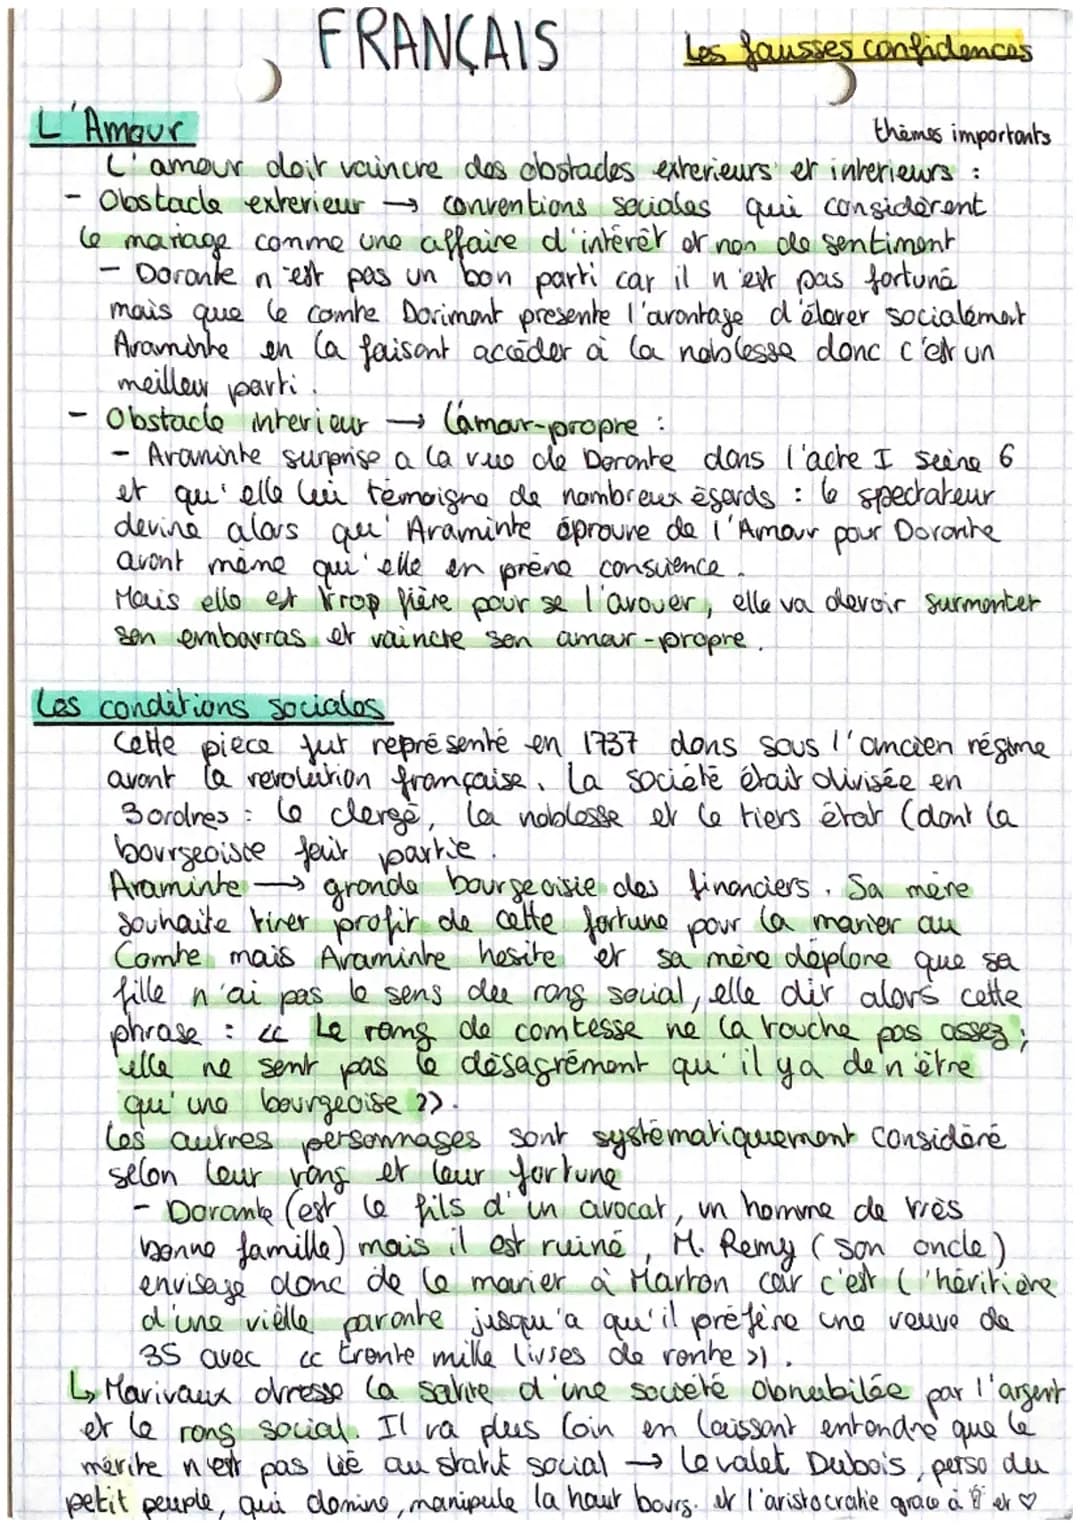 FRANÇAIS
Les fausses confidences
L'Amour
thèmes importants
L'amour doit vaincre des obstacles exterieurs et interieurs :
- Obstacle exterieur → conventions sociales qui considèrent
le mariage comme une affaire d'intérêt et non de sentiment
- Dorante n'est pas un bon parti car il n'est pas fortuné
mais que le comte Dorimont presente l'avantage d'élever socialement
Araminte en la faisant accéder à la noblesse donc c'est un
meilleur parti.
- Obstacle interieur → l'amour-propre :
- Araminte surprise a la vue de Dorante dans l'acte I scène 6
et qu'elle lui témoigne de nombreux égards : le spectateur
devine alors qu'Araminte éprouve de l'Amour pour Dorante
avant même qu'elle en prène conscience.
Mais elle est trop fière pour se l'avouer, elle va devoir surmonter
son embarras et vaincre son amour-propre.
Les conditions sociales
Cette pièce fut représenté en 1737 dans sous l'ancien régime
avant la revolution française. La société était divisée en
3 ordres : le clergé, la noblesse et le tiers état (dont la
bourgeoisie fait partie.
Araminte → grande bourgeoisie des financiers. Sa mère
souhaite tirer profit de cette fortune pour la marier au
Comte mais Araminte hesite et sa mère déplore que sa
fille n'ai pas le sens du rang social, elle dit alors cette
phrase : << Le rang de comtesse ne la touche pas assez ;
elle ne sent pas le désagrément qu'il y a de n'être
qu'une bourgeoise >>.
Les autres personnages sont systématiquement considéré
selon leur rang et leur fortune
- Dorante (est le fils d'un avocat, un homme de très
bonne famille) mais il est ruiné, M. Remy (son oncle)
envisage donc de le marier à Marton car c'est l'héritière
d'une vieille parente jusqu'a qu'il préfère une veuve de
35 avec << trente mille livres de rente >>.
↳ Marivaux dresse la satire d'une société obnubilée par l'argent
et le rang social. Il va plus loin en laissant entendre que le
mérite n'est pas lié au statut social → le valet Dubois, perso du
petit peuple, qui domine, manipule la haut bourg. et l'aristocratie grace à et ♡